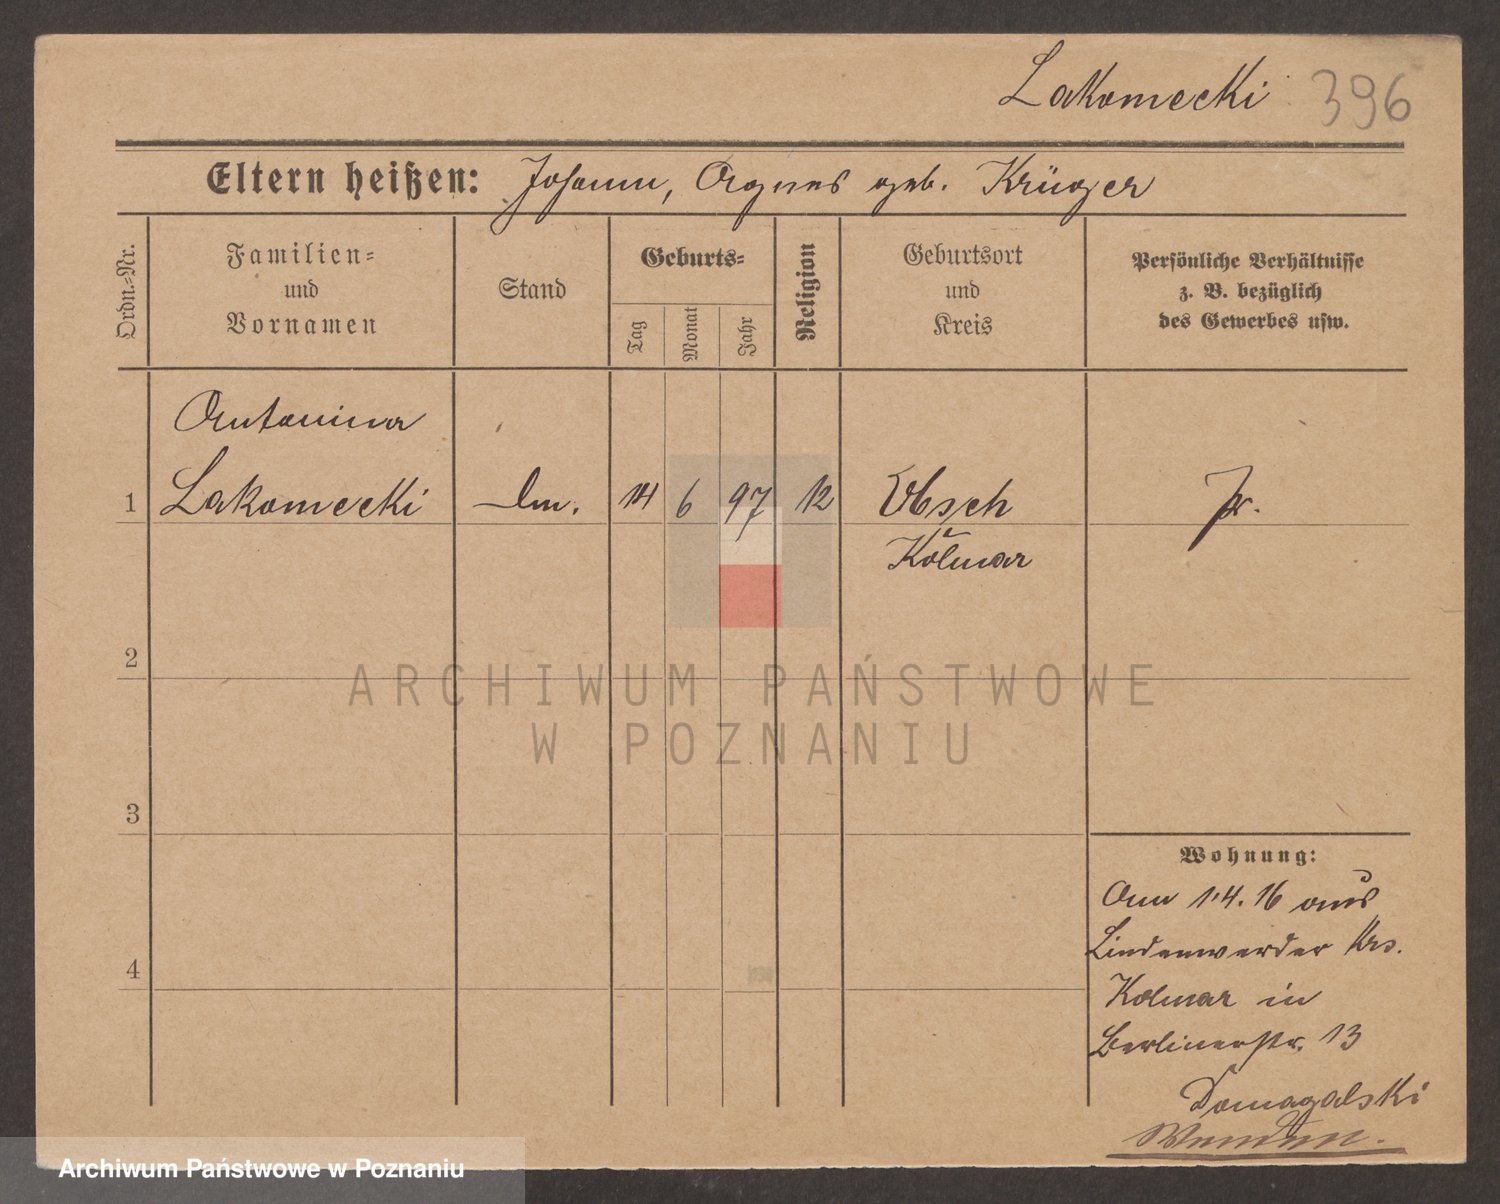 Lakomecki 396
Eltern heißen: Johann, Agnes geb. Krüger
Ordn.-Nr.
Familien-
und
Vornamen
Stand
Geburts-
Tag
Monat
Jahr
Religion
Geburtsort
und
Kreis
Persönliche Verhältnisse
z. B. bezüglich
des Gewerbes usw.
Antonina
1 Lakomecki 14 6 97 Usch pr.
Kolmar
2
3
4
Wohnung:
Am 1.4.16 aus
Lindenwerder Krs.
Kolmar in
Berlinerstr. 13
Domagalski
ARCHIWUM PAŃSTWOWE
W POZNANIU
Archiwum Państwowe w Poznaniu